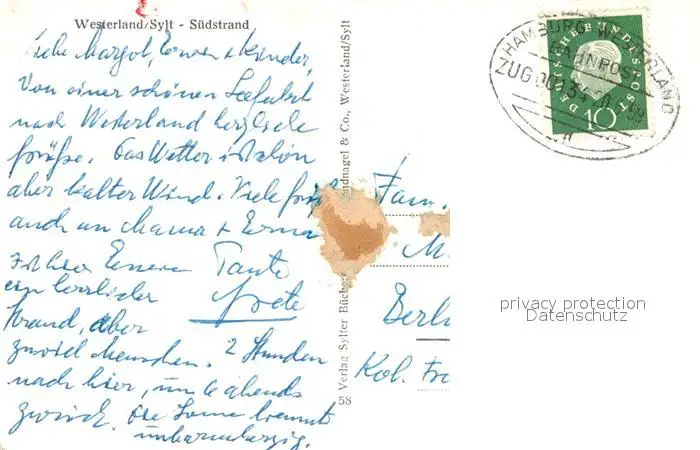 Westerland/Sylt - Südstrand
Liebe Margot, Erwin + Kinder,
Von einer schönen Seefahrt
nach Westerland herzliche
Grüße. Das Wetter ist schön
aber kalter Wind. Viele
auch an Mama + Erna
Eurer Tante
ein herrlicher Grete
Strand, aber
zuviel Menschen. 2 Stunden
nach hier, um 6 abends
zurück. Die Sonne brennt
unbarmherzig.
Verlag Sylter Büchers ndnagel & Co., Westerland/Sylt
58
HAMBURG - WESTERLAND
BAHNPOST
ZUG
DEUTSCHE BUNDESPOST
10
Fam.
M.
Berl
Kol.
privacy protection
Datenschutz